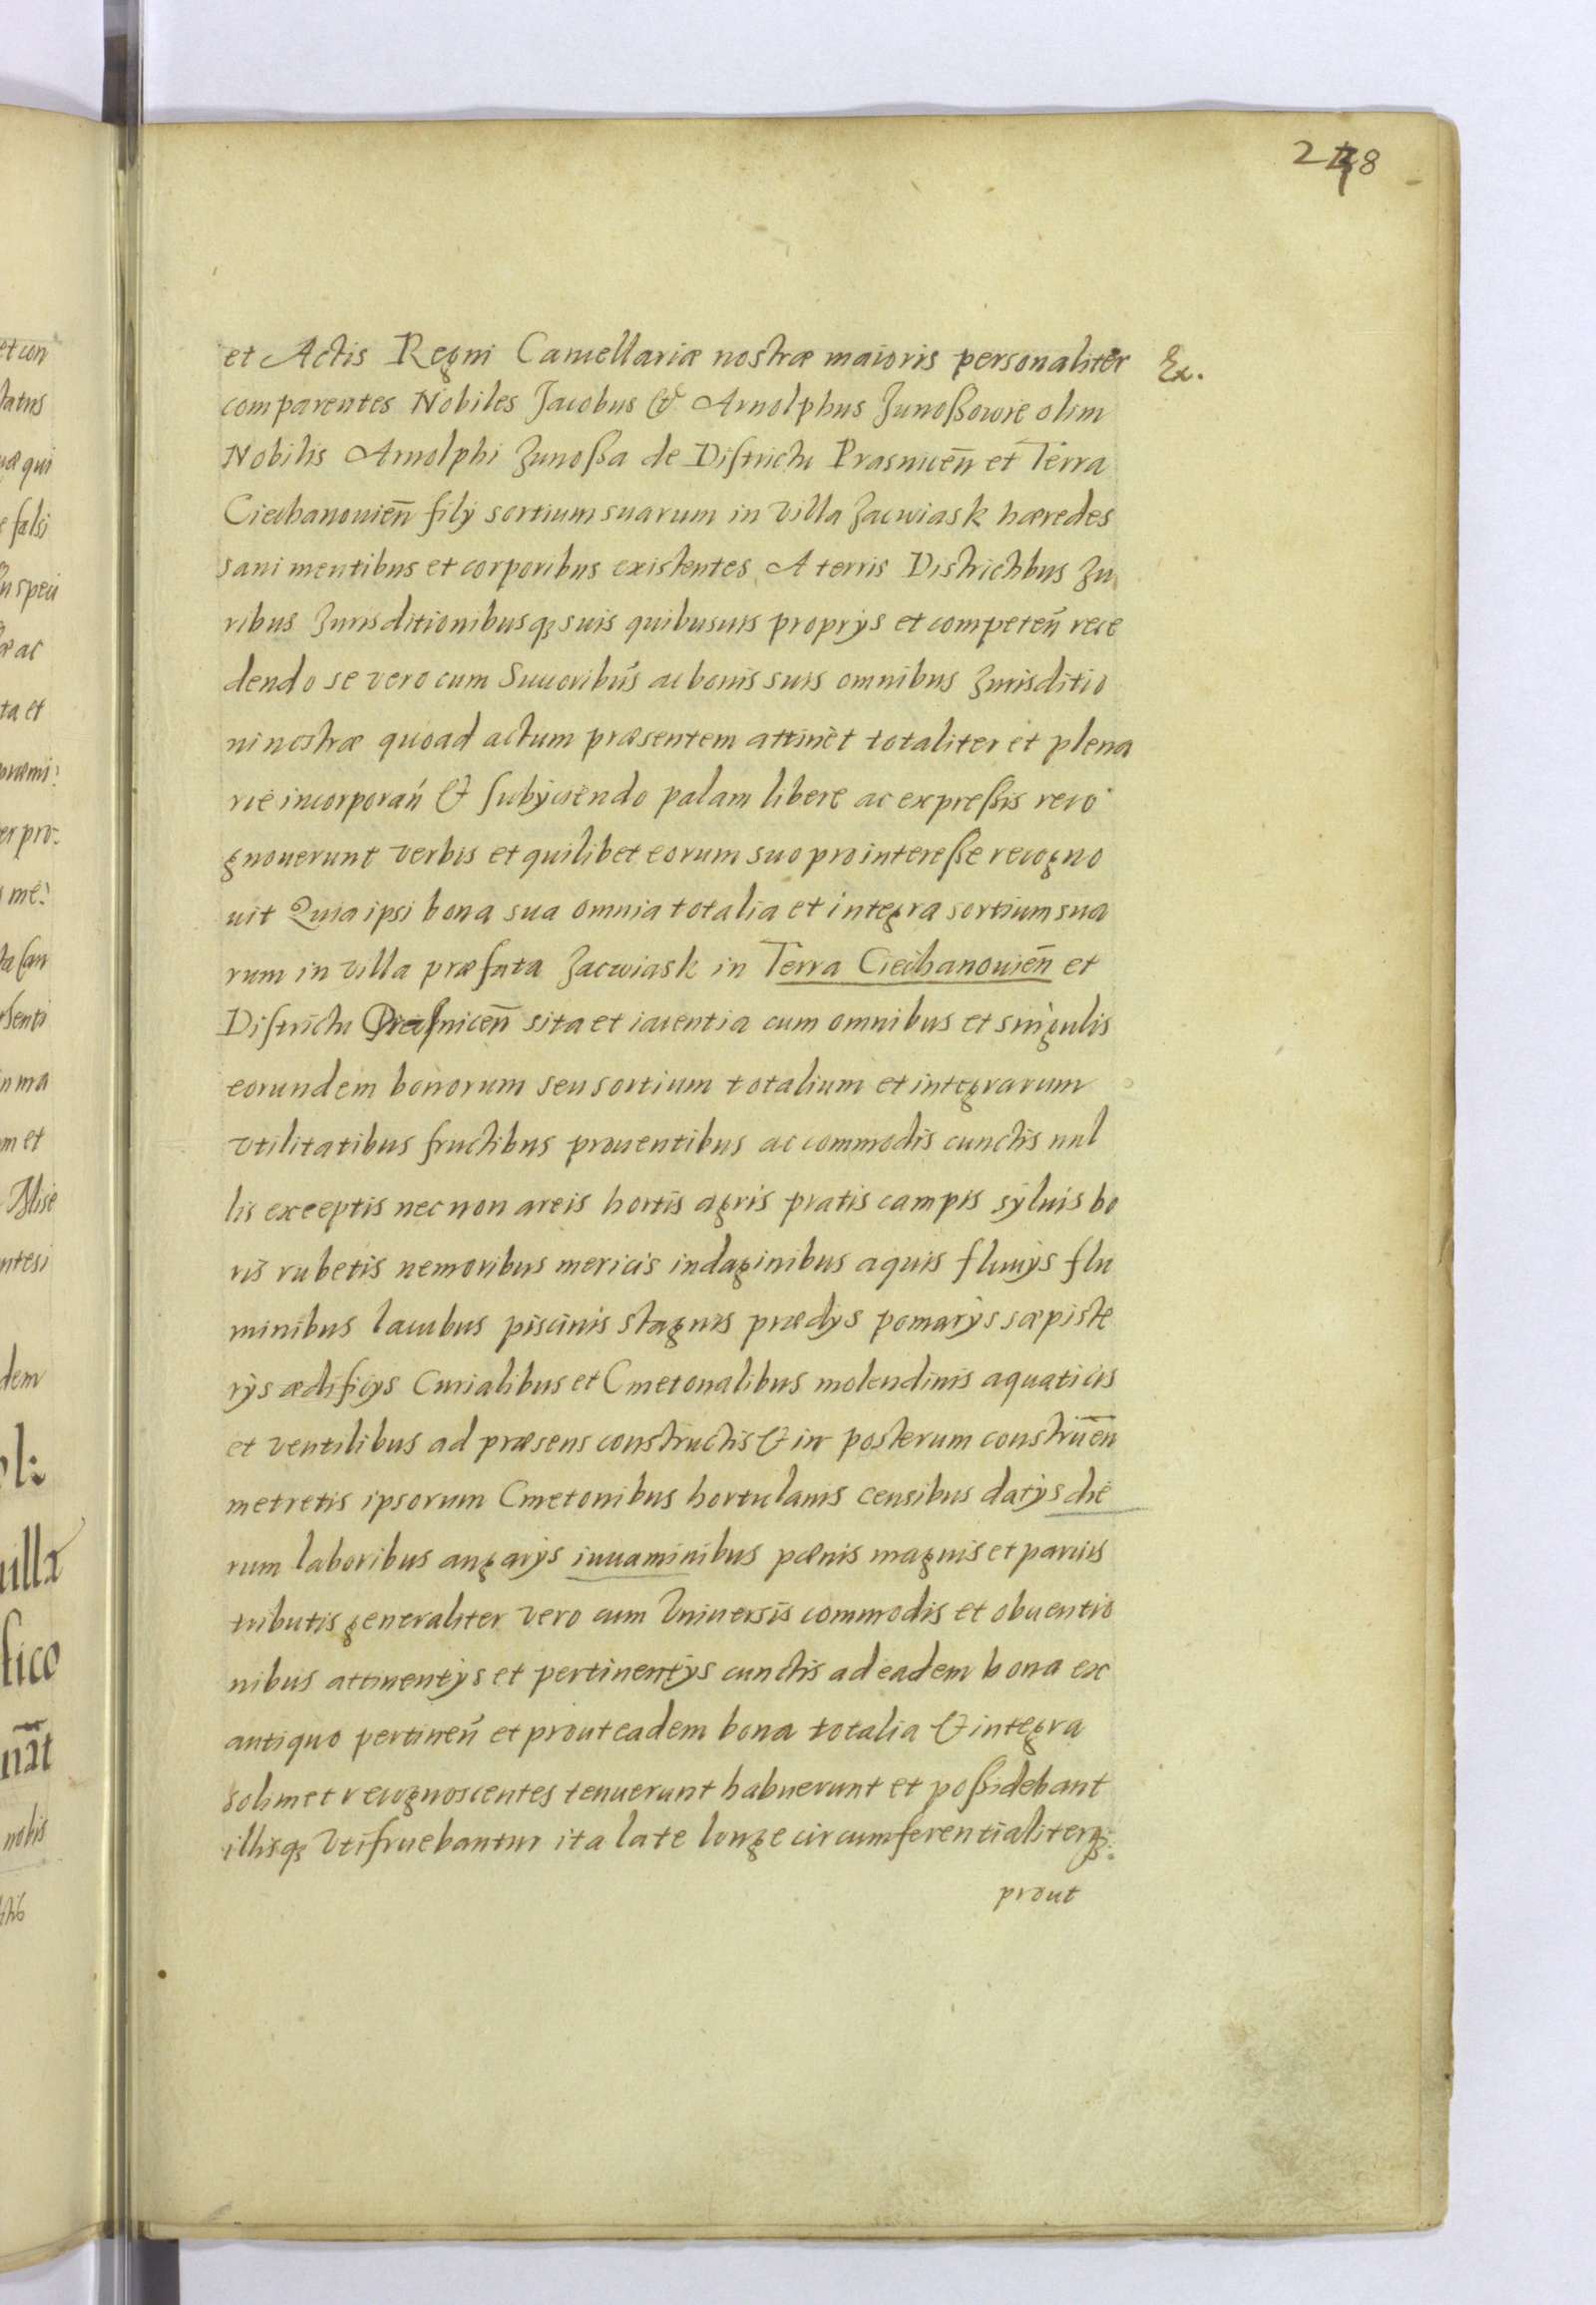 248
et Actis Regni Cancellariæ nostræ maioris personaliter
Ex.
comparentes Nobiles Jacobus & Arnolphus Junoßowie olim
Nobilis Arnolphi Junoßa de Districtu Prasnicen̄ et Terra
Ciechanouien̄ filÿ sortium suarum in villa Jacwiask hæredes
sani mentibus et corporibus existentes A terris Districtibus Ju
ribus Jurisditionibusq; suis quibusuis proprÿs et competen̄ rece
dendo se vero cum Succoribus ac bonis suis omnibus Jurisditio
ni nostræ quoad actum præsentem attinet totaliter et plena
rie incorporan̄ & subÿciendo palam libere ac expreßis reco
gnouerunt verbis et quilibet eorum suo pro intereße recogno
uit Quia ipsi bona sua omnia totalia et integra sortium sua
rum in villa præfata Jacwiask in Terra Ciechanouien̄ et
Districtu Prasnicen̄ sita et iacentia cum omnibus et singulis
eorundem bonorum seu sortium totalium et integrarum
vtilitatibus fructibus prouentibus ac commodis cunctis nul
lis exceptis nec non areis hortis agris pratis campis syluis bo
ris rubetis nemoribus mericis indaginibus aquis fluuÿs flu
minibus lacubus piscinis stagnis prædÿs pomarÿs sæpiste
rÿs ædificÿs Curialibus et Cmetonalibus molendinis aquaticis
et ventilibus ad præsens constructis & in posterum construen̄
metretis ipsorum Cmetonibus hortulanis censibus datÿs die
rum laboribus angarÿs iuuaminibus pœnis magnis et paruis
tributis generaliter vero cum Vniuersis commodis et obuentio
nibus attinentÿs et pertinentÿs cunctis ad eadem bona ex
antiquo pertinen̄ et prout eadem bona totalia & integra
solimet recognoscentes tenuerunt habuerunt et poßidebant
illisq; Vtifruebantur ita late longe circumferentialiterq;
prout